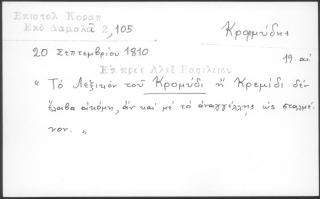 Επιστολ Κοραη
Εκδ Δαμαλᾶ 2, 105
Κρομμύδι
20 Σεπτεμβρίου 1810
19. αἰ
Ἐπ πρὸς Αλεξ Βασιλείου
“ Τὸ Λεξικὸν τοῦ Κρομύδι ἢ Κρεμίδι δὲν
ἔλαβα ἀκόμη, ἂν καὶ μὲ τὸ ἀναγγέλλῃς ὡς σταλμέ-
νον. „